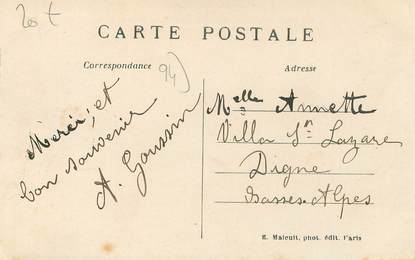 20 t
CARTE POSTALE
Correspondance
94)
Adresse
Merci, et
bon souvenir
A. Goussin
Melle Annette
Villa St Lazare
Digne
Basses-Alpes
E. Maleuit, phot. édit. Paris